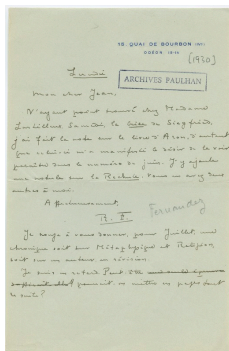 15, QUAI DE BOURBON (IVe)
ODÉON 15-14
[1930]
Lundi
ARCHIVES PAULHAN
Mon cher Jean,
N'ayant point trouvé chez Madame
Lucienne le livre de Siegfried,
j'ai fait la note sur le livre d'Aron, d'autant
que celui-ci m'a manifesté le désir de la voir
paraître dans le numéro de juin. J'y ajoute
une notule sur la Rochelle. Vous en avez une
autre à moi.
Affectueusement,
R. F.
Fernandez
Je songe à vous donner, pour Juillet, une
chronique soit sur Métaphysique et Religion,
soit sur un auteur
Je suis en retard. Peut-être
pourrait-on mettre ces pages tout
de suite?